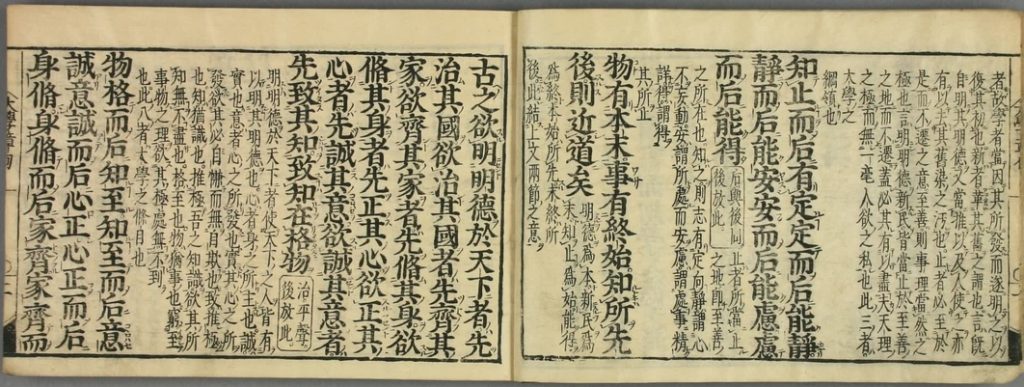 者故學者當因其所發而遂明之以
復其初也新者革其舊之謂也言既
自明其明德又當推以及人使之亦
有以去其舊染之汚也止者必至於
是而不遷之意至善則事理當然之
極也言明明德新民皆當止於至善
之地而不遷蓋必其有以盡夫天理
之極而無一毫人欲之私也此三者
大學之
綱領也
知止而后有定定而后能靜
靜而后能安安而后能慮慮
而后能得
后與後同
後放此
止者所當止
之地即至善
之所在也知之則志有定向靜謂心
不妄動安謂所處而安慮謂處事精
詳得謂得
其所止
物有本末事有終始知所先
後則近道矣
明德為本新民為
末知止為始能得
為終本始所先末終所
後此結上文兩節之意
古之欲明明德於天下者先
治其國欲治其國者先齊其
家欲齊其家者先脩其身欲
脩其身者先正其心欲正其
心者先誠其意欲誠其意者
先致其知致知在格物
治平聲
後放此
明明德於天下者使天下之人皆有
以明其明德也心者身之所主也誠
實也意者心之所發也實其心之所
發欲其必自慊而無自欺也致推極
也知猶識也推極吾之知識欲其所
知無不盡也格至也物猶事也窮至
事物之理欲其極處無不到
也此八者大學之條目也
物格而后知至知至而后意
誠意誠而后心正心正而后
身脩身脩而后家齊家齊而